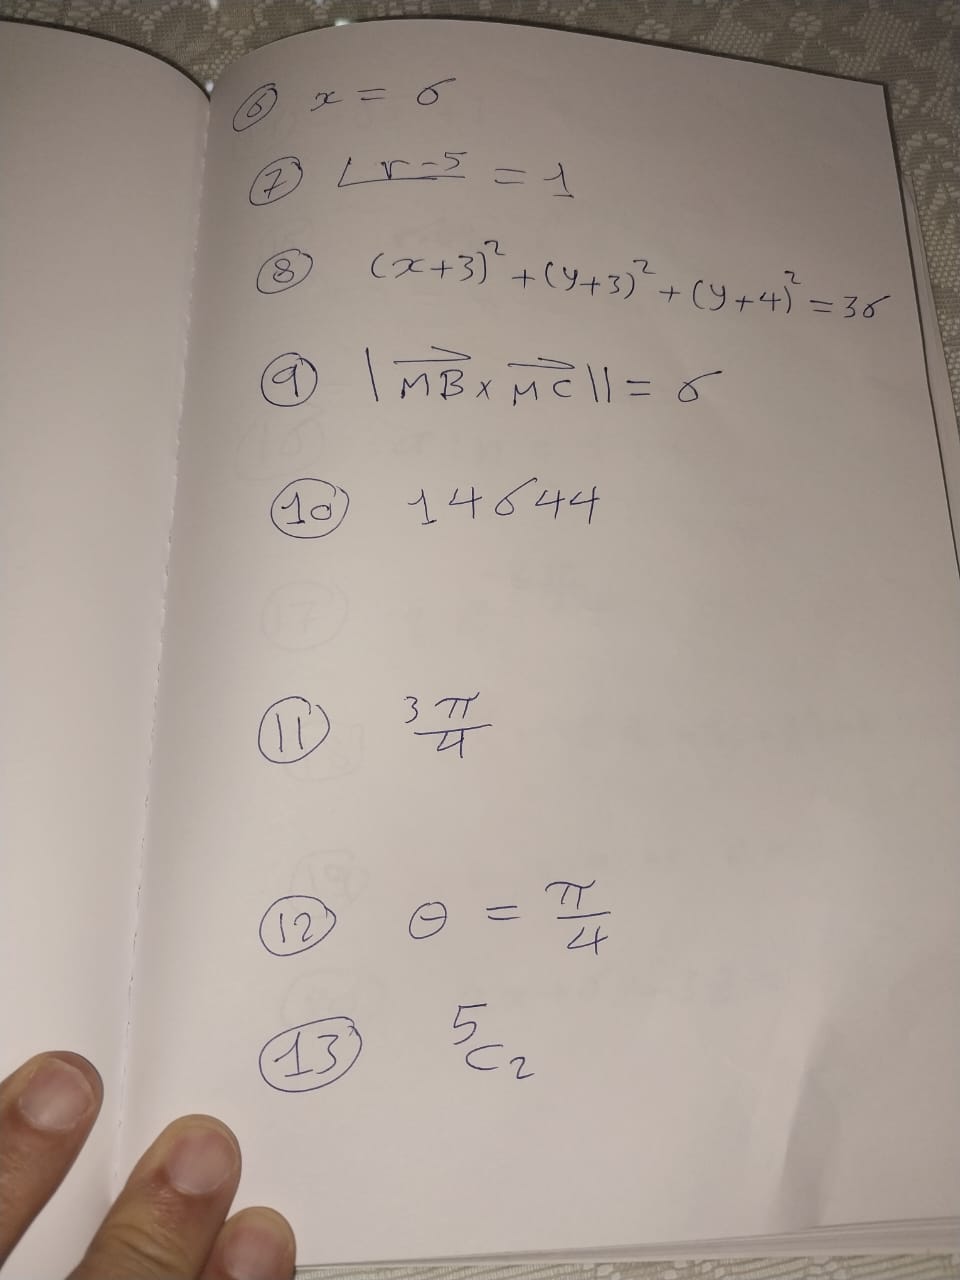 ⑥ x = 6
⑦ ∠r-5 = 1
⑧ (x+3)² + (y+3)² + (y+4)² = 36
⑨ | MB x MC || = 6
⑩ 14644
⑪ 3π/4
⑫ θ = π/4
⑬ ⁵C₂